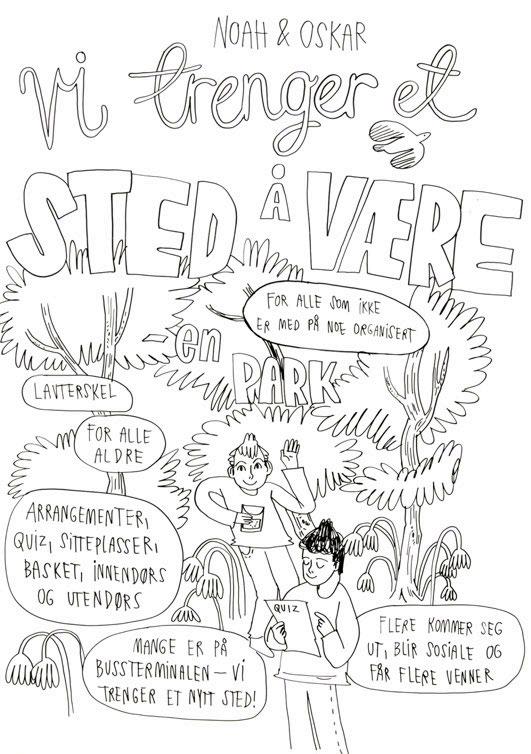 NOAH & OSKAR
Vi trenger et
STED Å VÆRE
- en PARK
FOR ALLE SOM IKKE
ER MED PÅ NOE ORGANISERT
LAVTERSKEL
FOR ALLE
ALDRE
ARRANGEMENTER,
QUIZ, SITTEPLASSER,
BASKET, INNENDØRS
OG UTENDØRS
QUIZ
MANGE ER PÅ
BUSSTERMINALEN – VI
TRENGER ET NYTT STED!
FLERE KOMMER SEG
UT, BLIR SOSIALE OG
FÅR FLERE VENNER